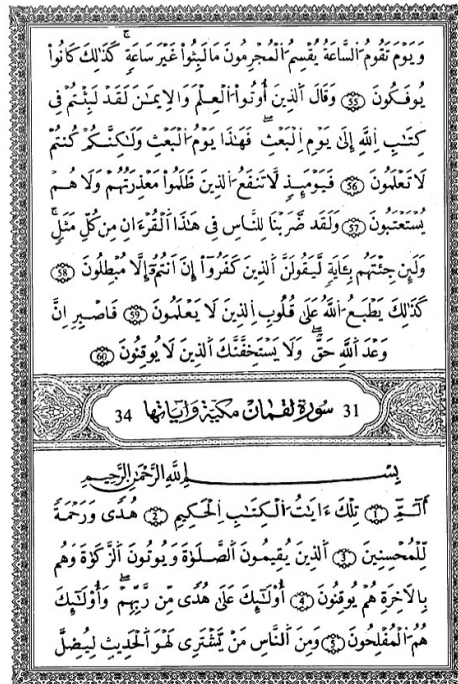 وَيَوْمَ تَقُومُ السَّاعَةُ يُقْسِمُ الْمُجْرِمُونَ مَا لَبِثُوا غَيْرَ سَاعَةٍ كَذَٰلِكَ كَانُوا
يُوفَكُونَ 55 وَقَالَ الَّذِينَ أُوتُوا الْعِلْمَ وَالْإِيمَٰنَ لَقَد لَّبِثْتُمْ فِي
كِتَٰبِ اللَّهِ إِلَىٰ يَوْمِ الْبَعْثِ فَهَٰذَا يَوْمُ الْبَعْثِ وَلَٰكِنَّكُمْ كُنتُمْ
لَا تَعْلَمُونَ 56 فَيَوْمَئِذٍ لَّا تَنفَعُ الَّذِينَ ظَلَمُوا مَعْذِرَتُهُمْ وَلَا هُمْ
يُسْتَعْتَبُونَ 57 وَلَقَد ضَّرَبْنَا لِلنَّاسِ فِي هَٰذَا الْقُرْءَانِ مِن كُلِّ مَثَلٍ
وَلَئِن جِئْتَهُم بِـَٔايَةٍ لَّيَقُولَنَّ الَّذِينَ كَفَرُوٓا إِنْ أَنتُمُۥٓ إِلَّا مُبْطِلُونَ 58
كَذَٰلِكَ يَطْبَعُ اللَّهُ عَلَىٰ قُلُوبِ الَّذِينَ لَا يَعْلَمُونَ 59 فَاصْبِرِ انَّ
وَعْدَ اللَّهِ حَقٌّ وَلَا يَسْتَخِفَّنَّكَ الَّذِينَ لَا يُوقِنُونَ 60
31 سورة لقمان مكية وآياتها 34
بِسْمِ اللَّهِ الرَّحْمَٰنِ الرَّحِيمِ
أَلَٓمِّٓ 1 تِلْكَ ءَايَٰتُ الْكِتَٰبِ الْحَكِيمِ 2 هُدًى وَرَحْمَةً
لِّلْمُحْسِنِينَ 3 الَّذِينَ يُقِيمُونَ الصَّلَوٰةَ وَيُوتُونَ الزَّكَوٰةَ وَهُم
بِالَاخِرَةِ هُمْ يُوقِنُونَ 4 أُوْلَٰٓئِكَ عَلَىٰ هُدًى مِّن رَّبِّهِمْ وَأُوْلَٰٓئِكَ
هُمُ الْمُفْلِحُونَ 5 وَمِنَ النَّاسِ مَنْ يَّشْتَرِي لَهْوَ الْحَدِيثِ لِيُضِلَّ